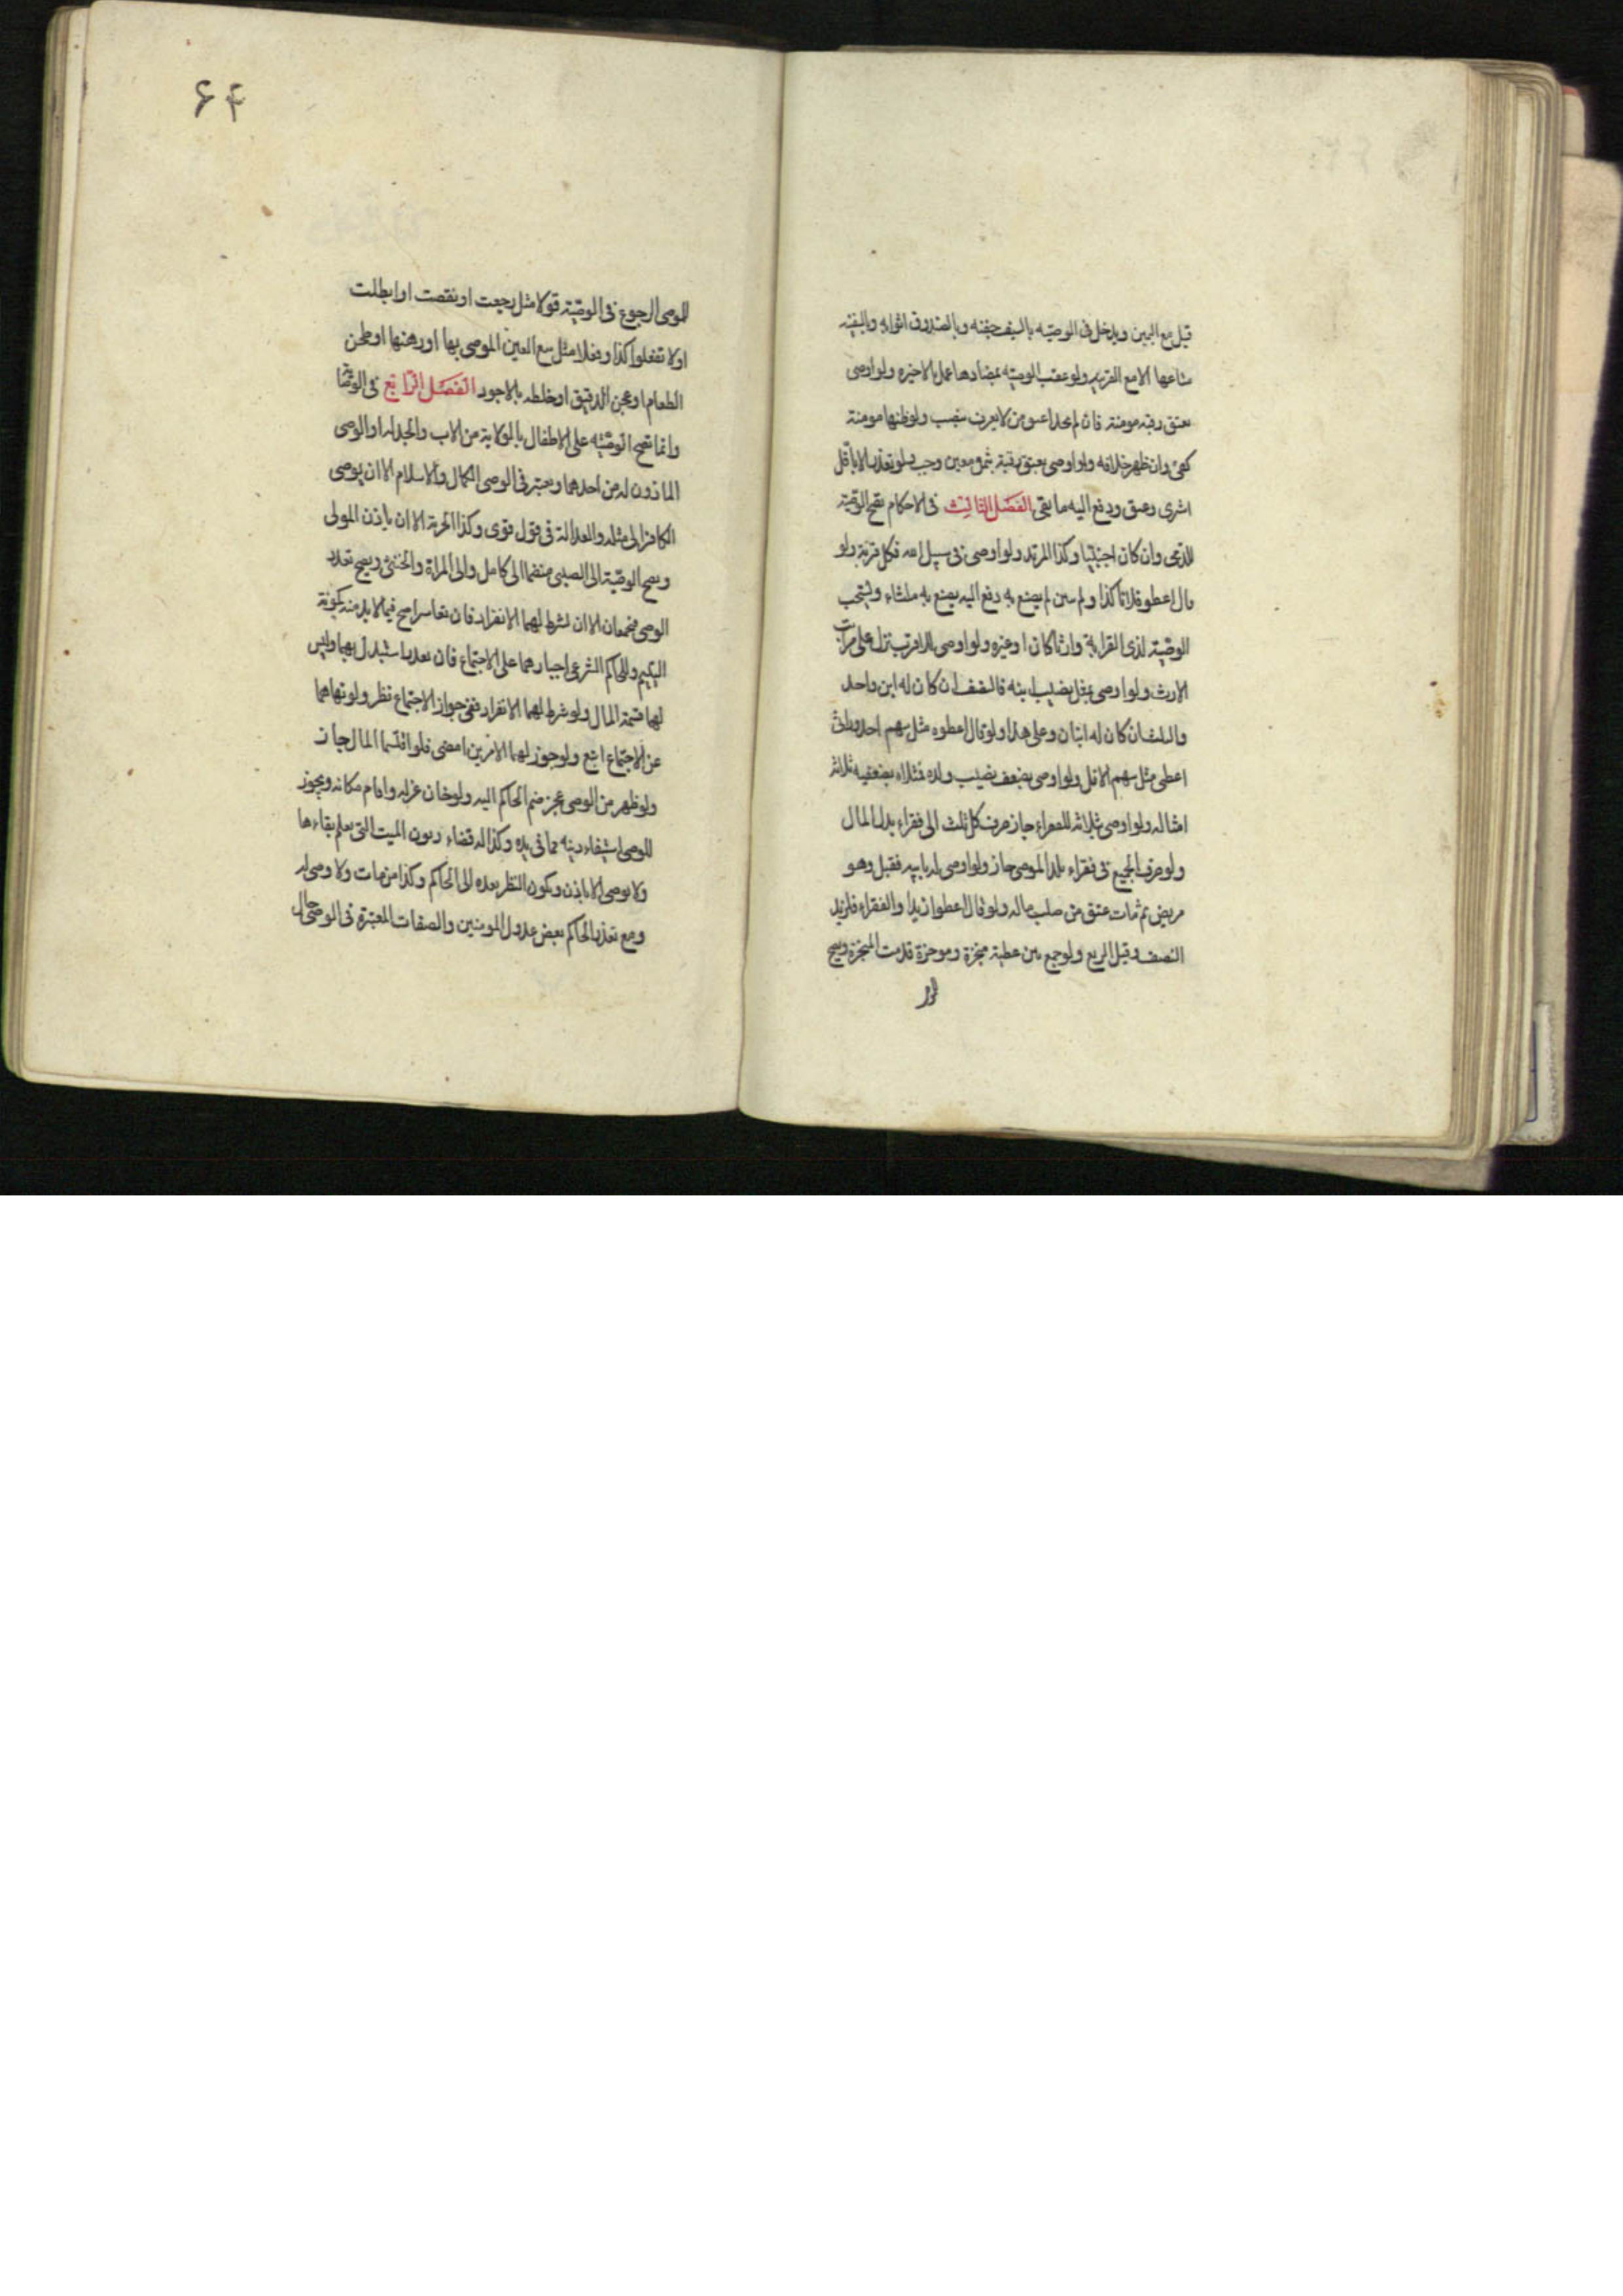 قيل مع اليمين ويدخل في الوصيّة بالسيف جفنه وبالصندوق اثوابه وبالسفينة
متاعها الا مع القرينه ولو عقب الوصيّه بمضادها عمل بالاخيره ولو اوصى
بعتق رقبه مومنة فان لم يجد اعتق من لا يعرف بنصب ولو ظنها مومنة
كفى وان ظهر خلافه ولو اوصى بعتق رقبة بثمن معين وجب ولو تعذر الا باقل
اشترى وعتق ودفع اليه ما بقى الفصل الثالث في الاحكام تصح الوصيّة
للذمى وان كان اجنبيا وكذا المرتد ولو اوصى في سبيل الله فكل قربة ولو
قال اعطوا فلانا كذا ولم يبين ما يصنع به دفع اليه يصنع به ما شاء ويستحب
الوصيّة لذى القرابة وارثا كان او غيره ولو اوصى للاقرب نزل على مراتب
الارث ولو اوصى بمثل نصيب ابنه فالنصف ان كان له ابن واحد
والثلث ان كان له ابنان وعلى هذا ولو قال اعطوه مثل سهم احد وراثى
اعطى مثل سهم الاقل ولو اوصى بضعف نصيب ولده فمثلاه بضعفيه ثلاثة
امثاله ولو اوصى بثلاثه للفقراء جاز صرف كل ثلث الى فقراء بلد المال
ولو صرف الجميع في فقراء بلد الموصى جاز ولو اوصى له بابيه فقبل وهو
مريض ثم مات عتق من صلب ماله ولو قال اعطوا زيدا والفقراء فلزيد
النصف وقيل الربع ولو جمع بين عطية منجزة وموخرة قدمت المنجزة ويصح
للموصى الرجوع في الوصيّة قولا مثل رجعت او نقصت او ابطلت
او لا تفعلوا كذا وفعلا مثل بيع العين الموصى بها او رهنها او طحن
الطعام او عجن الدقيق او خلطه بالاجود الفصل الرابع في الوصايا
وانما تصح الوصيّه على الاطفال بالولاية من الاب والجد له او الوصى
الماذون له من احدهما ويعتبر في الوصى الكمال والاسلام الا ان يوصى
الكافر الى مثله والعدالة في قول قوى وكذا الحرية الا ان ياذن المولى
ويصح الوصيّة الى الصبى منضما الى كامل والى المراة والخنثى ويصح تعدد
الوصى فيجتمعان الا ان يشرط لهما الانفراد فان تعاسرا صح فيما لا بد منه كمؤنة
اليتيم وللحاكم الشرعى اجبارهما على الاجتماع فان تعذر استبدل بهما وليس
لهما قسمة المال ولو شرط لهما الانفراد ففى جواز الاجتماع نظر ولو نهاهما
عن الاجتماع اتبع ولو جوز لهما الامرين امضى فلو اقتسما المال جاز
ولو ظهر من الوصى عجز ضم الحاكم اليه ولو خان عزله واقام مكانه ويجوز
للوصى استيفاء دينه مما في يده وكذا له قضاء ديون الميت التى يعلم بقاءها
ولا يوصى الا باذن ويكون النظر بعده الى الحاكم وكذا من مات ولا وصى له
ومع تعذر الحاكم بعض عدول المومنين والصفات المعتبرة في الوصى حال